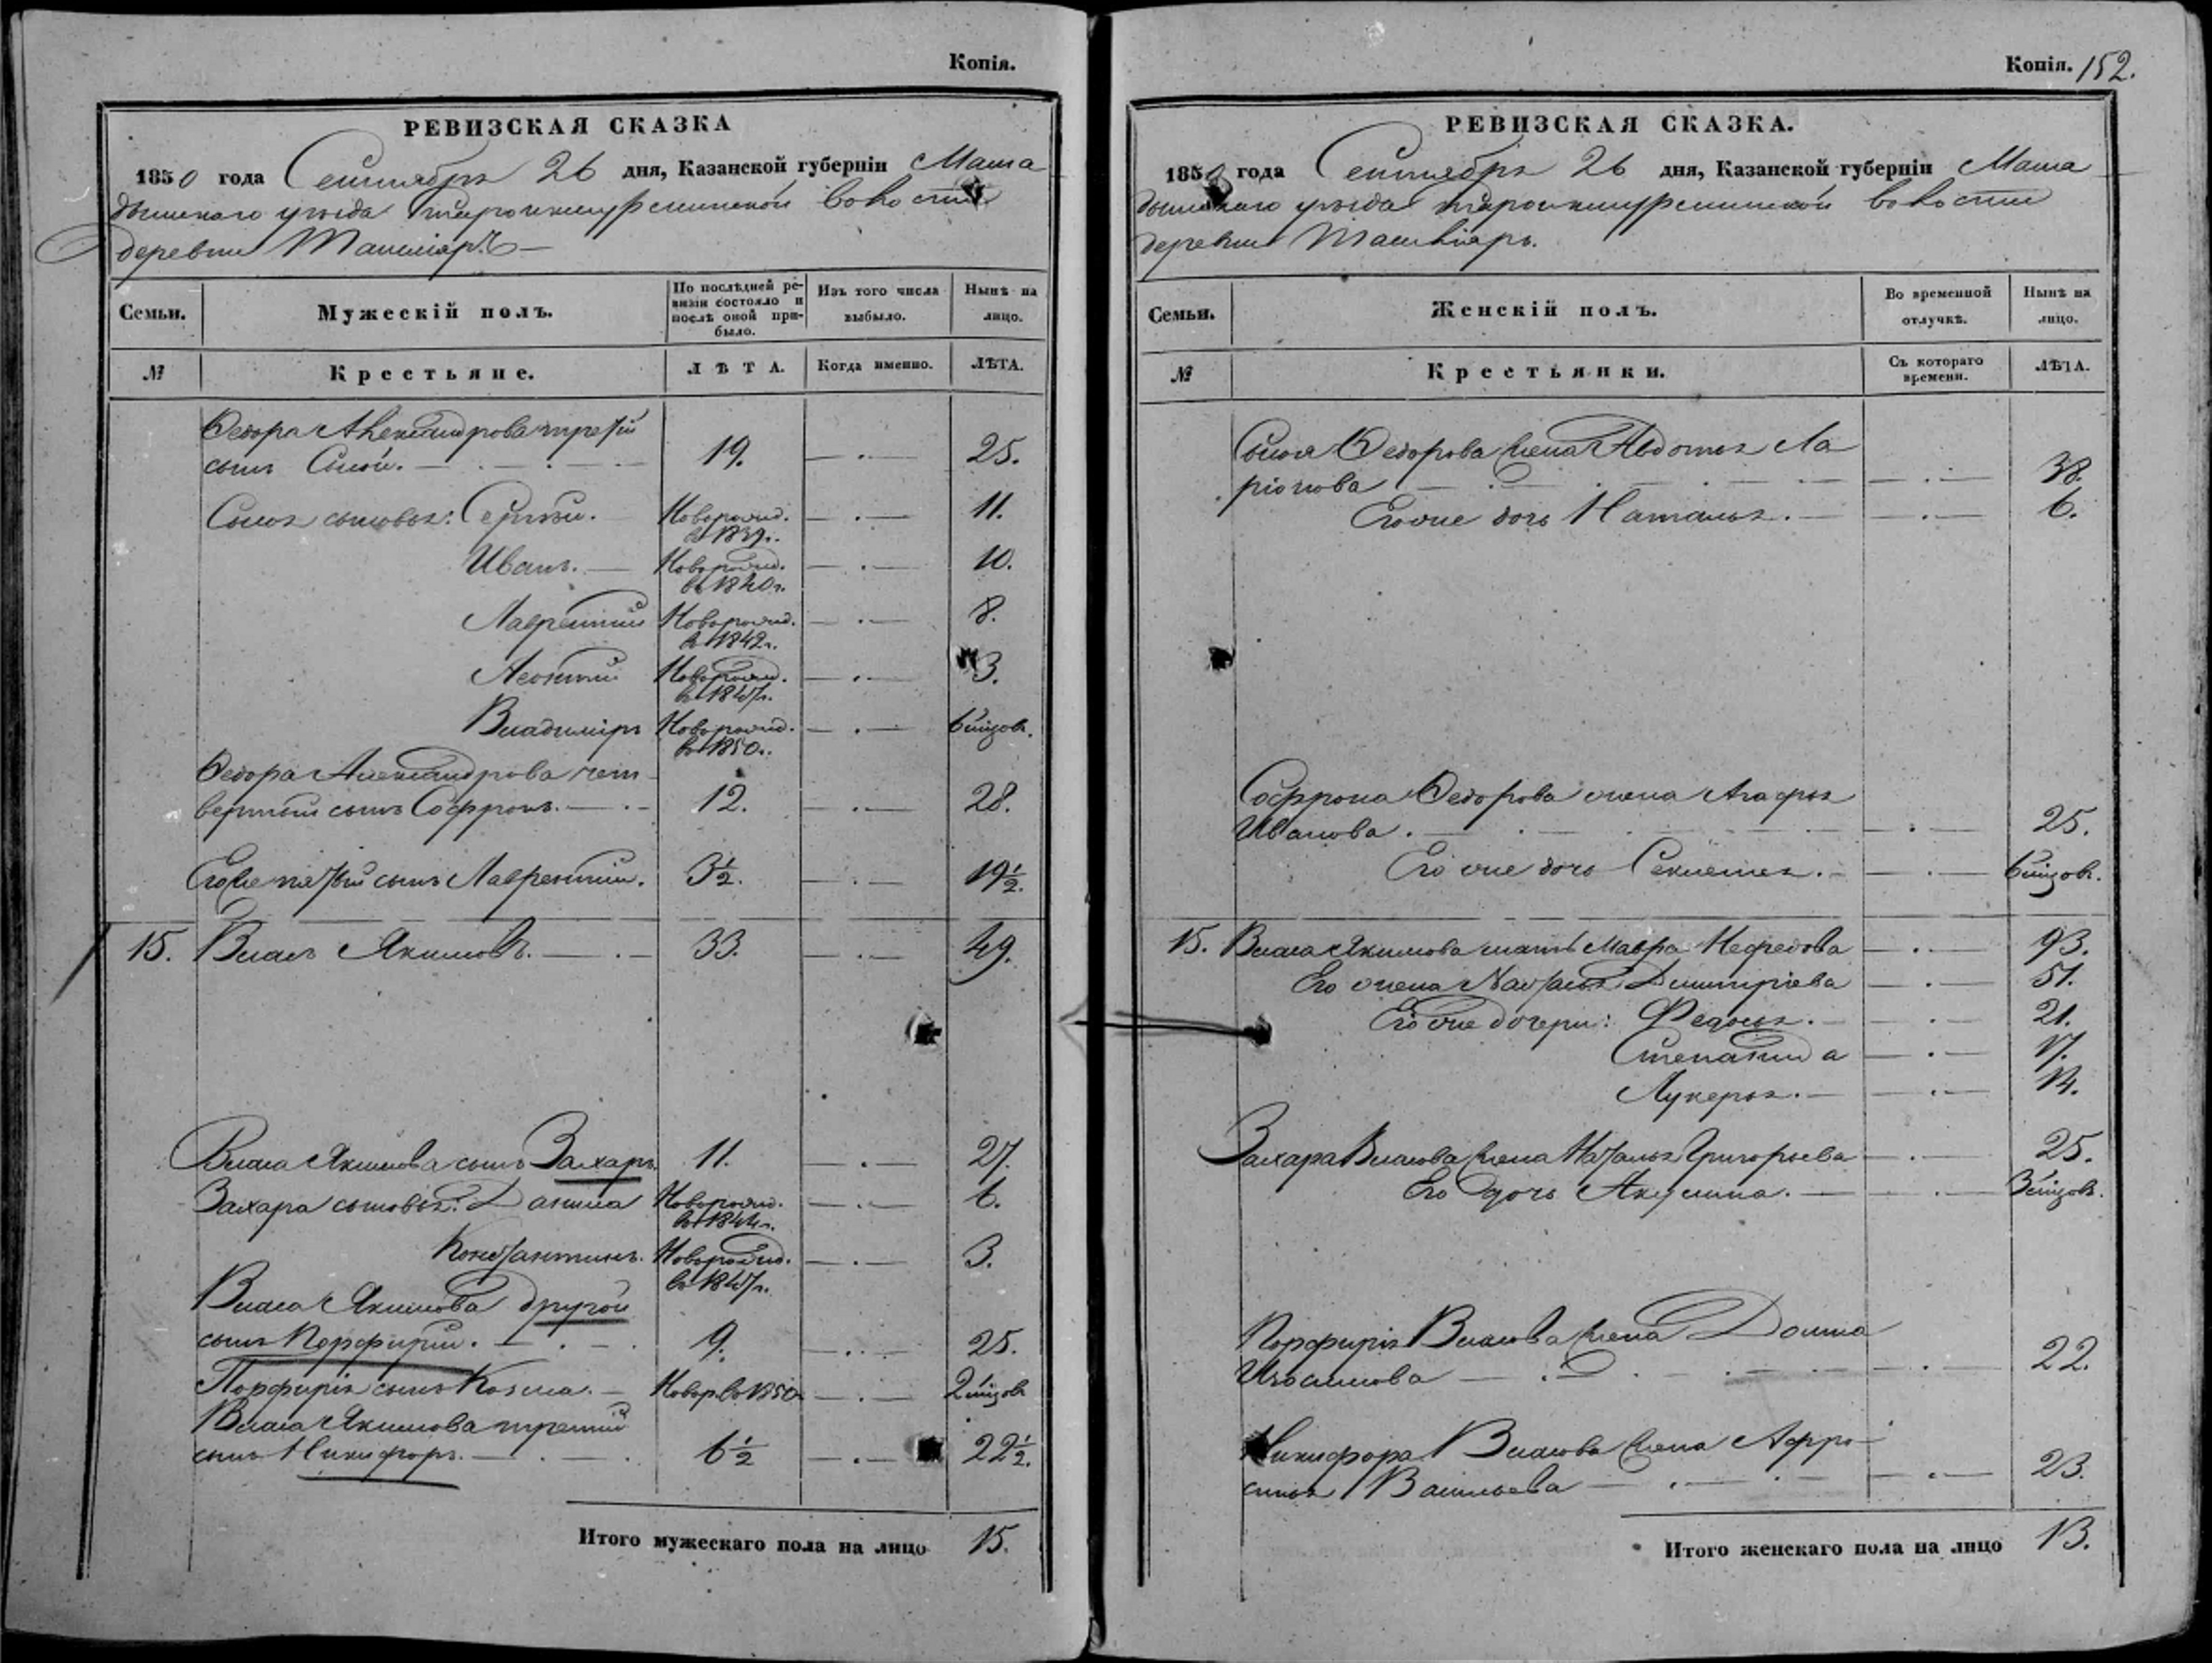 Копія.
РЕВИЗСКАЯ СКАЗКА
1850 года Сентября 26 дня, Казанской губерніи Мама
дышскаго уѣзда волости
деревни
Семьи.
Мужескій полъ.
По послѣдней ре-
визіи состояло и
послѣ оной при-
было.
Изъ того числа
выбыло.
Нынѣ на
лицо.
№
Крестьяне.
ЛѢТА.
Когда именно.
ЛѢТА.
Ѳедора Александрова третій
сынъ Сысой. 19. 25.
Сысоя сыновья: Сергѣй. Новорожд. 11.
в 1839г.
Иванъ. Новорожд. 10.
в 1840г.
Лаврентій Новорожд. 8.
в 1842г.
Леонтій Новорожд. 3.
в 1847г.
Владиміръ Новорожд. 6 мѣсяцовъ.
в 1850г.
Ѳедора Александрова чет
вертый сынъ Софронъ. 12. 28.
Его же пятый сынъ Лаврентій. 3½. 19½.
15. Власъ Якимовъ. 33. 49.
Власа Якимова сынъ Захаръ 11. 27.
Захара сыновья: Данила Новорожд. 6.
в 1844г.
Константинъ. Новорожд. 3.
в 1847г.
Власа Якимова другой
сынъ Порфирій. 9. 25.
Порфирія сынъ Козма. Новор. в 1850 2 мѣсяцов
Власа Якимова третій
сынъ Никифоръ. 6½ 22½.
Итого мужескаго пола на лицо 15.
Копія. 152.
РЕВИЗСКАЯ СКАЗКА.
1850 года Сентября 26 дня, Казанской губерніи Мама
дышскаго уѣзда волости
деревни
Семьи.
Женскій полъ.
Во временной
отлучкѣ.
Нынѣ на
лицо.
№
Крестьянки.
Съ котораго
времени.
ЛѢТА.
Сысоя Ѳедорова жена Авдотья Ла
ріонова 38.
Его же дочь Наталья. 6.
Софрона Ѳедорова жена Агафья
Иванова. 25.
Его же дочь 6 мѣсяцовъ.
15. Власа Якимова мать Мавра Нефедова 93.
Его жена Настасья Димитріева 51.
Его же дочери: Ѳедосья. 21.
Степанида 17.
Лукерья. 14.
Захара Власова жена Наталья Григорьева 25.
Его дочь Акулина. 3 мѣсяцовъ.
Порфирія Власова жена Домна
Изосимова 22.
Никифора Власова жена Афро
синья Васильева 23.
Итого женскаго пола на лицо 13.